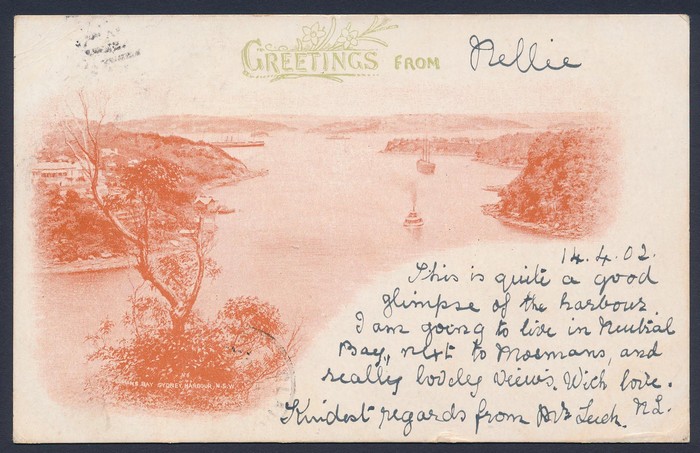 GREETINGS FROM Nellie
14.4.02.
This is quite a good
glimpse of the harbour.
I am going to live in Neutral
Bay, next to Mosmans, and
really lovely views. With love.
Kindest regards from N.L.
BAY SYDNEY HARBOUR, N.S.W.